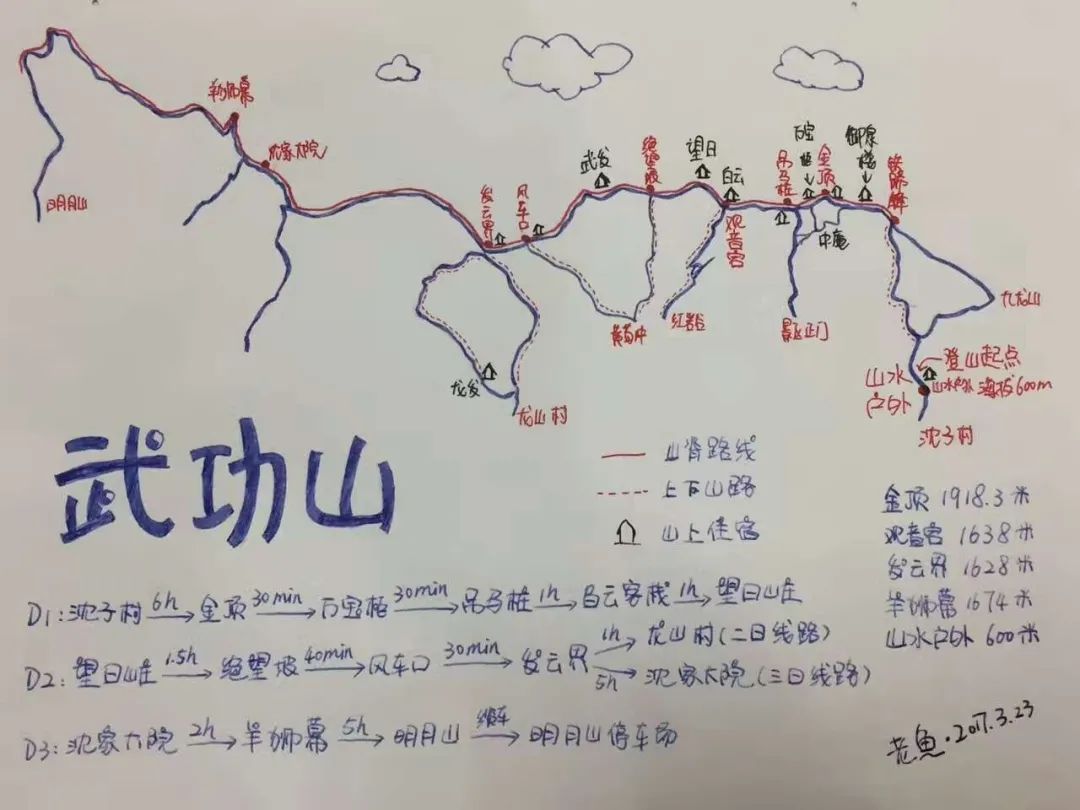 羊狮幕
沈家大院
明月山
发云界
风车口
武发
绝望坡
望日
白云
观音宫
吊马桩
万宝柜
金顶
御泉楼
铁蹄峰
中庵
九龙山
黄药冲
红岩谷
景区正门
龙发
龙山村
登山起点
山水户外
山水户外 海拔600m
沈子村
武功山
山脊路线
上下山路
山上住宿
金顶 1918.3米
观音宫 1638米
发云界 1628米
羊狮幕 1674米
山水户外 600米
D1:沈子村 6h 金顶 30min 万宝柜 30min 吊马桩 1h 白云客栈 1h 望日山庄
D2:望日山庄 1.5h 绝望坡 40min 风车口 30min 发云界 1h 龙山村(二日线路)
5h 沈家大院(三日线路)
D3:沈家大院 2h 羊狮幕 5h 明月山 缆车 明月山停车场
老鱼·2017.3.23